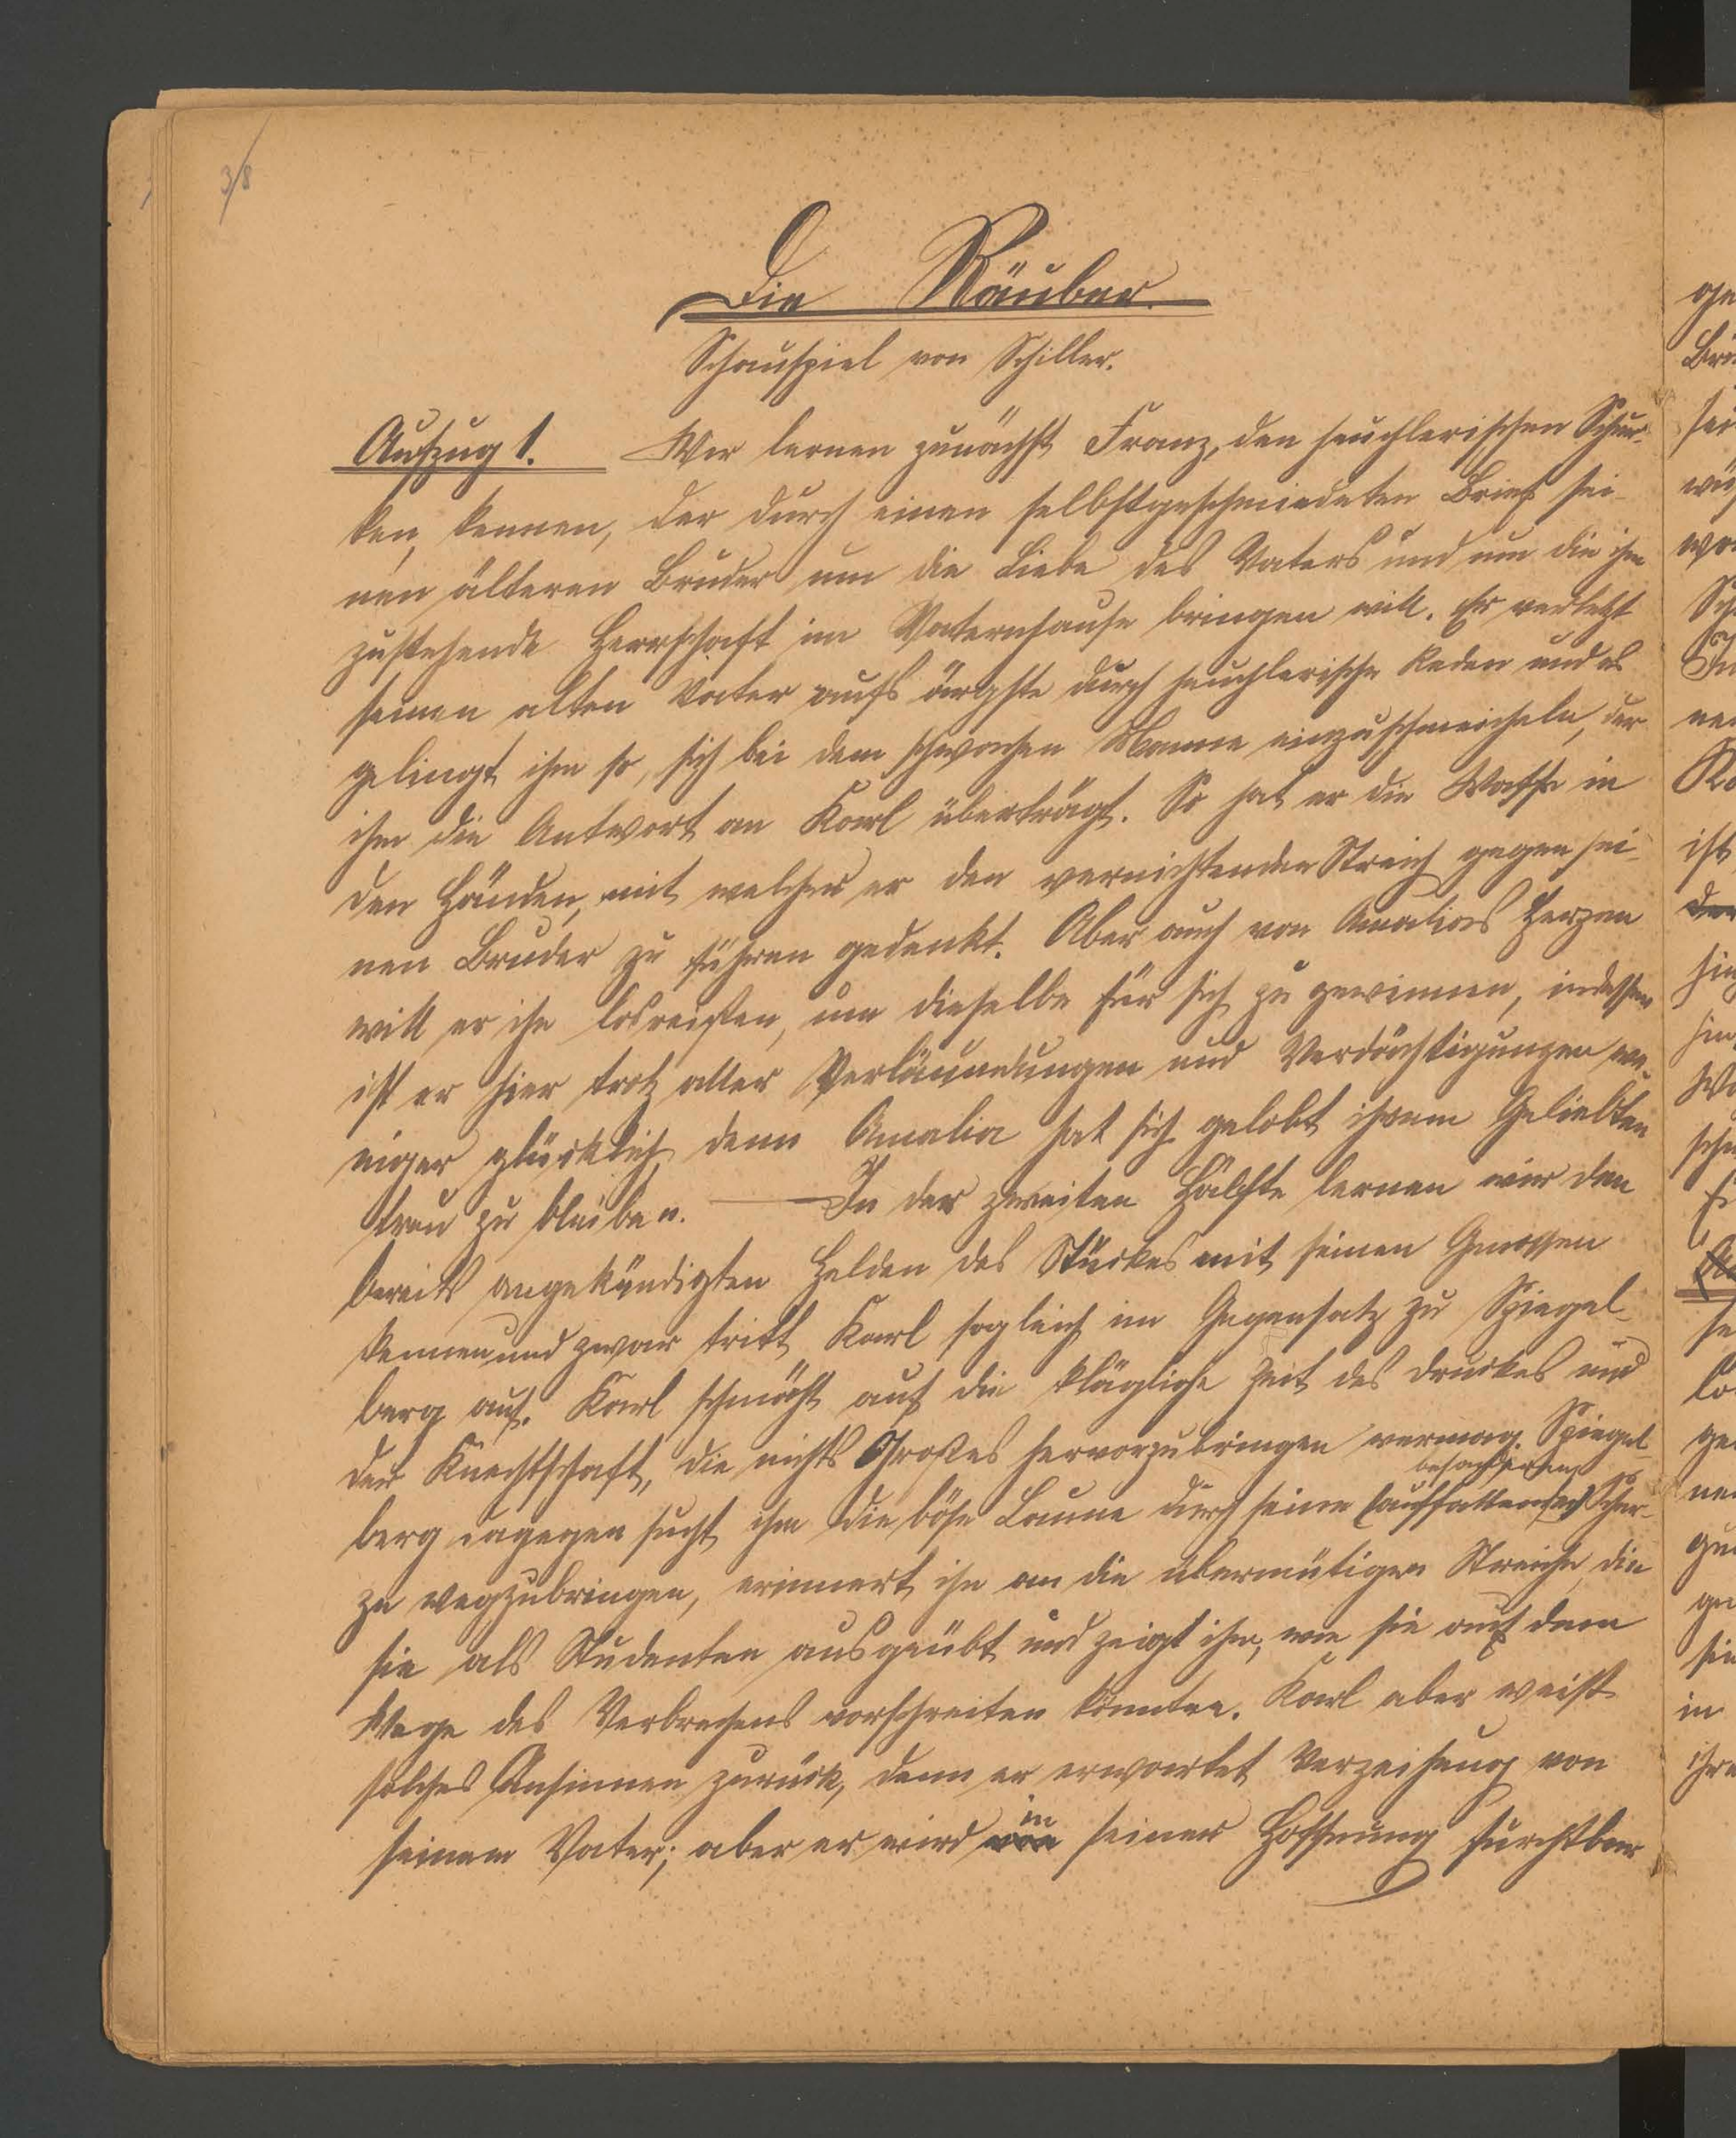 3/8
Die Räuber.
Schauspiel von Schiller.
Aufzug 1. Wir lernen zunächst Franz, den heuchlerischen Schur-
ken, kennen, der durch einen selbstgeschmiedeten Brief sei-
nen älteren Bruder um die Liebe des Vaters und um die ihm
zustehende Herrschaft im Vaternhause bringen will. Er verletzt
seinen alten Vater aufs ärgste durch heuchlerische Reden und es
gelingt ihm so, sich bei dem schwachen Manne einzuschmeicheln, der
ihm die Antwort an Karl überträgt. So hat er die Waffe in
den Händen, mit welcher er den vernichtenden Streich gegen sei-
nen Bruder zu führen gedenkt. Aber auch von Amalias Herzen
will er ihn losreißen, um dieselbe für sich zu gewinnen, indessen
ist er hier trotz aller Verläumdungen und Verdächtigungen we-
niger glücklich, denn Amalia hat sich gelobt ihrem Geliebten
treu zu bleiben. — In der zweiten Hälfte lernen wir den
bereits angekündigten Helden des Stückes mit seinen Genossen
kennen und zwar tritt Karl sogleich im Gegensatz zu Spiegel-
berg auf. Karl schmäht auf die klägliche Zeit des Druckes und
der Knechtschaft, die nichts Großes hervorzubringen vermag. Spiegel-
berg dagegen sucht ihm die böse Laune durch seine (auffallenden) Scher-
ze wegzubringen, erinnert ihn an die übermütigen Streiche, die
sie als Studenten ausgeübt und zeigt ihm, wie sie auf dem
Wege des Verbrechens vorschreiten könnten. Karl aber weist
solches Ansinnen zurück, denn er erwartet Verzeihung von
in
seinem Vater; aber er wird von seiner Hoffnung furchtbar